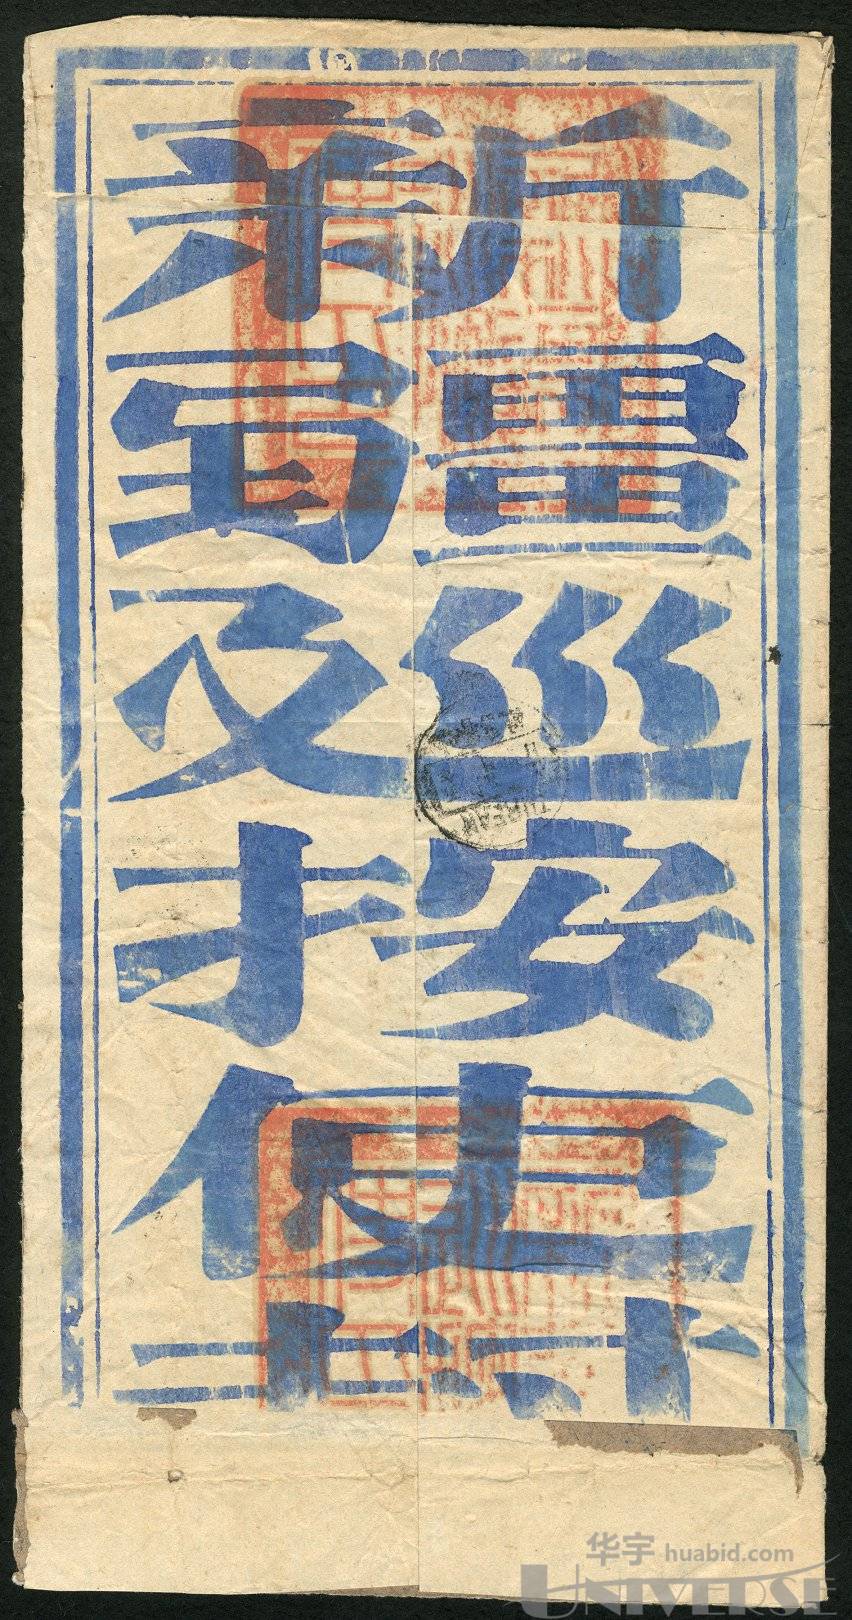 新疆巡按使封
华宇 huabid.com
UNIVERSE